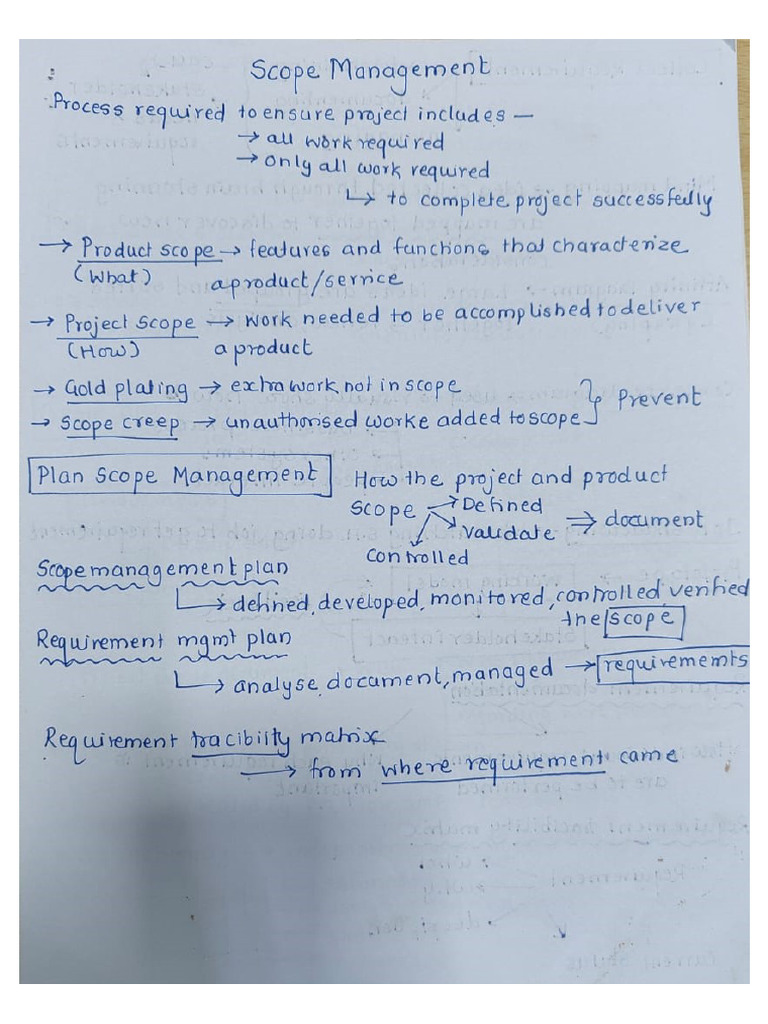 Scope Management
Process required to ensure project includes —
→ all work required
→ only all work required
↳ to complete project successfully
→ Product scope → features and functions that characterize
(What) a product/service
→ Project Scope → Work needed to be accomplished to deliver
(How) a product
→ Gold plating → extra work not in scope
→ Scope creep → unauthorised worke added to scope } Prevent
Plan Scope Management How the project and product
Scope → Defined
→ Validate ⇒ document
Controlled
Scope management plan
↳ defined, developed, monitored, controlled verified
the scope
Requirement mgmt plan
↳ analyse, document, managed → requirememts
Requirement tracibilty matrix
→ from where requirement came